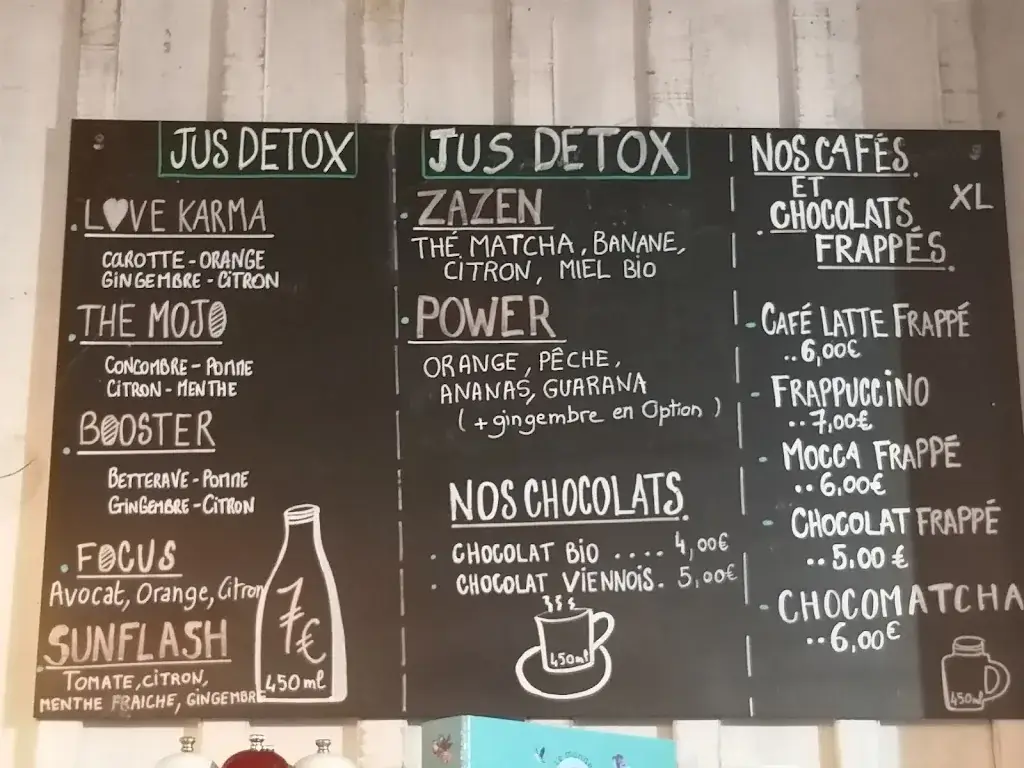 JUS DETOX
L♥VE KARMA
CAROTTE - ORANGE
GINGEMBRE - CITRON
THE MOJO
CONCOMBRE - POMME
CITRON - MENTHE
BOOSTER
BETTERAVE - POMME
GINGEMBRE - CITRON
FOCUS
Avocat, Orange, Citron
SUNFLASH
TOMATE, CITRON,
MENTHE FRAICHE, GINGEMBRE
7€
450 ml
JUS DÉTOX
ZAZEN
THÉ MATCHA, BANANE,
CITRON, MIEL BIO
POWER
ORANGE, PÊCHE,
ANANAS, GUARANA
(+gingembre en Option)
NOS CHOCOLATS
CHOCOLAT BIO .... 4,00€
CHOCOLAT VIENNOIS. 5,00€
450ml
NOS CAFÉS
ET
CHOCOLATS
FRAPPÉS
XL
- CAFÉ LATTE FRAPPÉ
..6,00€
- FRAPPUCCINO
..7,00€
- MOCCA FRAPPÉ
..6,00€
- CHOCOLAT FRAPPÉ
..5,00 €
- CHOCOMATCHA
..6,00€
450ml